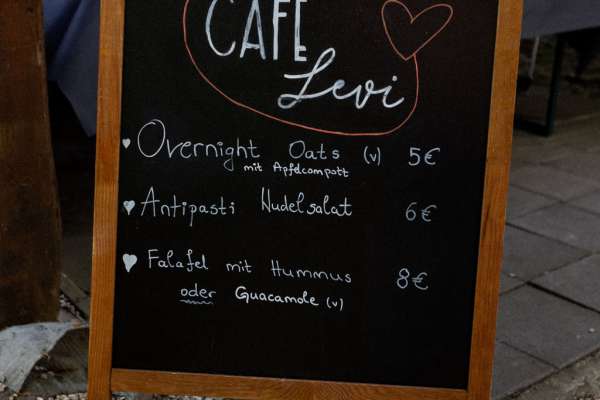 CAFE
Levi
Overnight Oats (v) 5€
mit Apfelcompott
Antipasti Nudelsalat 6€
Falafel mit Hummus 8€
oder Guacamole (v)